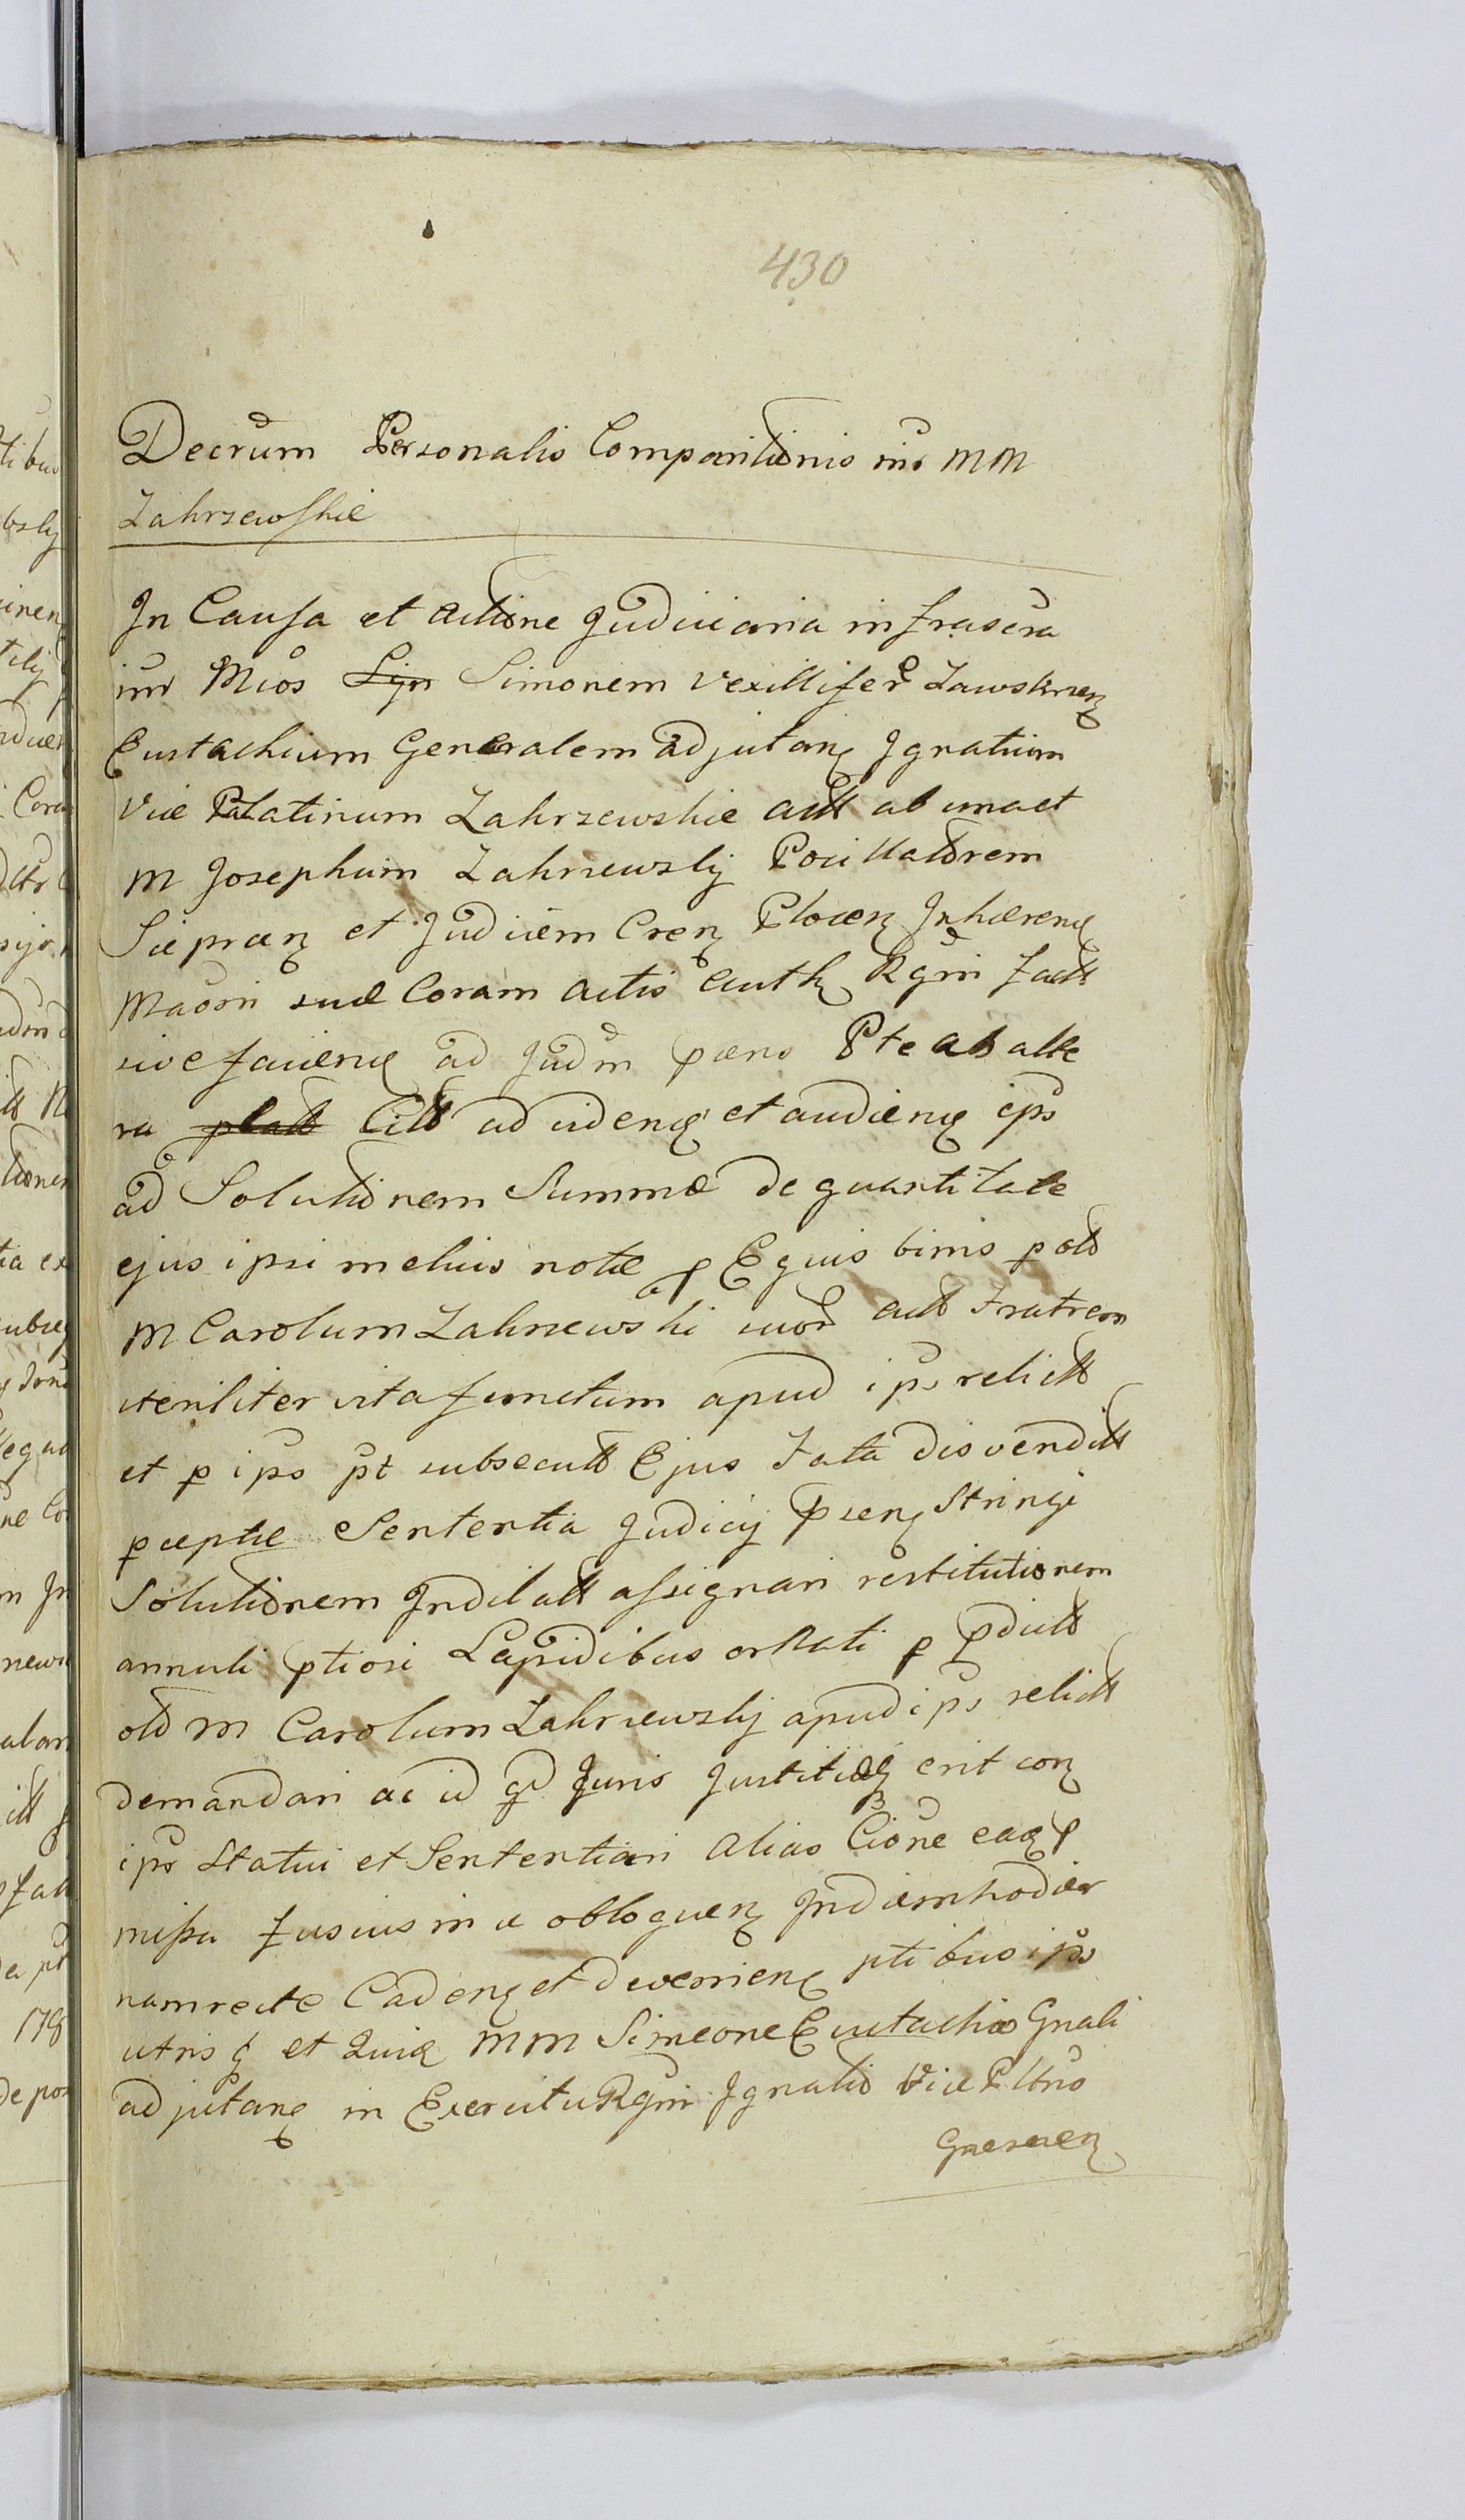 430
Decrum Personalis Comparitionis inr MM
Zakrzewskie
In Causa et actione Judiciaria infrascra
inr Mcos Syn Simonem Vexilliferr Zawskrzen
Eustachium Generalem adjutanc Ignatium
Vice Palatinum Zakrzewskie actt ab una et
M Josephum Zakrzewskj Pocillatorem
Sieprcen et Judicem Cren Plocen Inhaerenc
Maoni suae Coram actis auth Rgni factt
sive faciend ad Judm praens Pte ab alte
ra platt Citt ad videnc et audienc ips
ad Solutionem Summae de quantitate
ejus ipsi melius notae p Equis binis p olt
M Carolum Zakrzewski suor actt Fratrem
steriliter vita functum apud ips relictt
et p ips pt subsecutt Ejus Fata disvenditt
pceptae Sententia Judicij Psen Stringi
Solutionem Indilatt assignari restitutionem
annuli ptiosi Lapidibus ornati p pdictt
olt M Carolum Zakrzewskj apud ips relictt
demandari ac id qd Juris Justitiaeq erit con
ips Statui et Sententiari alias Cione eaq p
missa fusius in se obloquen In diem hodier
nam recte Caden et devenienc ptibus ips
utrisq et Quid MM Simeone Eustachio Gnali
adjutanc in Exercitu Rgni Ignatio Vice Pltno
Gnesnen